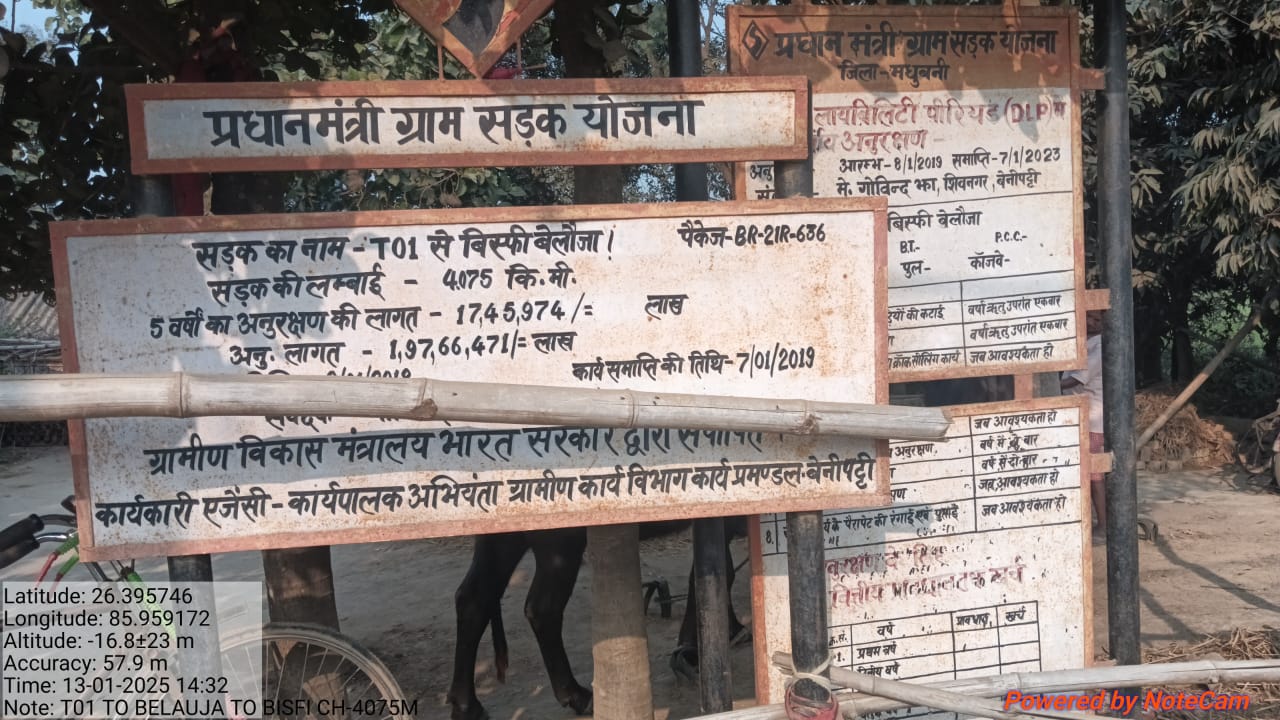 प्रधानमंत्री ग्राम सड़क योजना
सड़क का नाम - T01 से बिस्फी बेलौजा! पैकेज-BR-21R-636
सड़क की लम्बाई - 4.075 कि.मी.
5 वर्षों का अनुरक्षण की लागत - 17,45,974/= लाख
अनु. लागत - 1,97,66,471/= लाख
कार्य समाप्ति की तिथि- 7/01/2019
ग्रामीण विकास मंत्रालय भारत सरकार द्वारा
कार्यकारी एजेंसी - कार्यपालक अभियंता ग्रामीण कार्य विभाग कार्य प्रमण्डल-बेनीपट्टी
प्रधान मंत्री ग्राम सड़क योजना
जिला - मधुबनी
लायबिलिटी पीरियड (DLP)
अनुरक्षण -
आरम्भ - 8/1/2019 समाप्ति - 7/1/2023
मे. गोविन्द झा, शिवनगर, बेनीपट्टी
बिस्फी बेलौजा
B.T.- P.C.C.-
पुल- कॉजवे-
की कटाई वर्षा ऋतु उपरांत एकबार
वर्षा ऋतु उपरांत एकबार
सीलिंग कार्य जब आवश्यकता हो
जब आवश्यकता हो
अनुरक्षण, वर्ष में दो बार
वर्ष में दो बार
जब आवश्यकता हो
8. के पैरापेट की रंगाई एवं पुताई जब आवश्यकता हो
क्र.सं. वर्ष प्रावधान खर्च
1. प्रथम वर्ष
वर्ष
Latitude: 26.395746
Longitude: 85.959172
Altitude: -16.8±23 m
Accuracy: 57.9 m
Time: 13-01-2025 14:32
Note: T01 TO BELAUJA TO BISFI CH-4075M
Powered by NoteCam